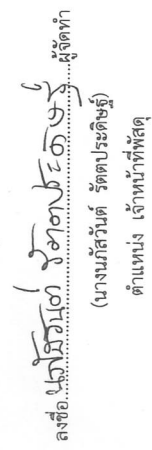 ลงชื่อ นภัสวันต์ รัตตประดิษฐ์ ผู้จัดทำ
(นางนภัสวันต์ รัตตประดิษฐ์)
ตำแหน่ง เจ้าหน้าที่พัสดุ